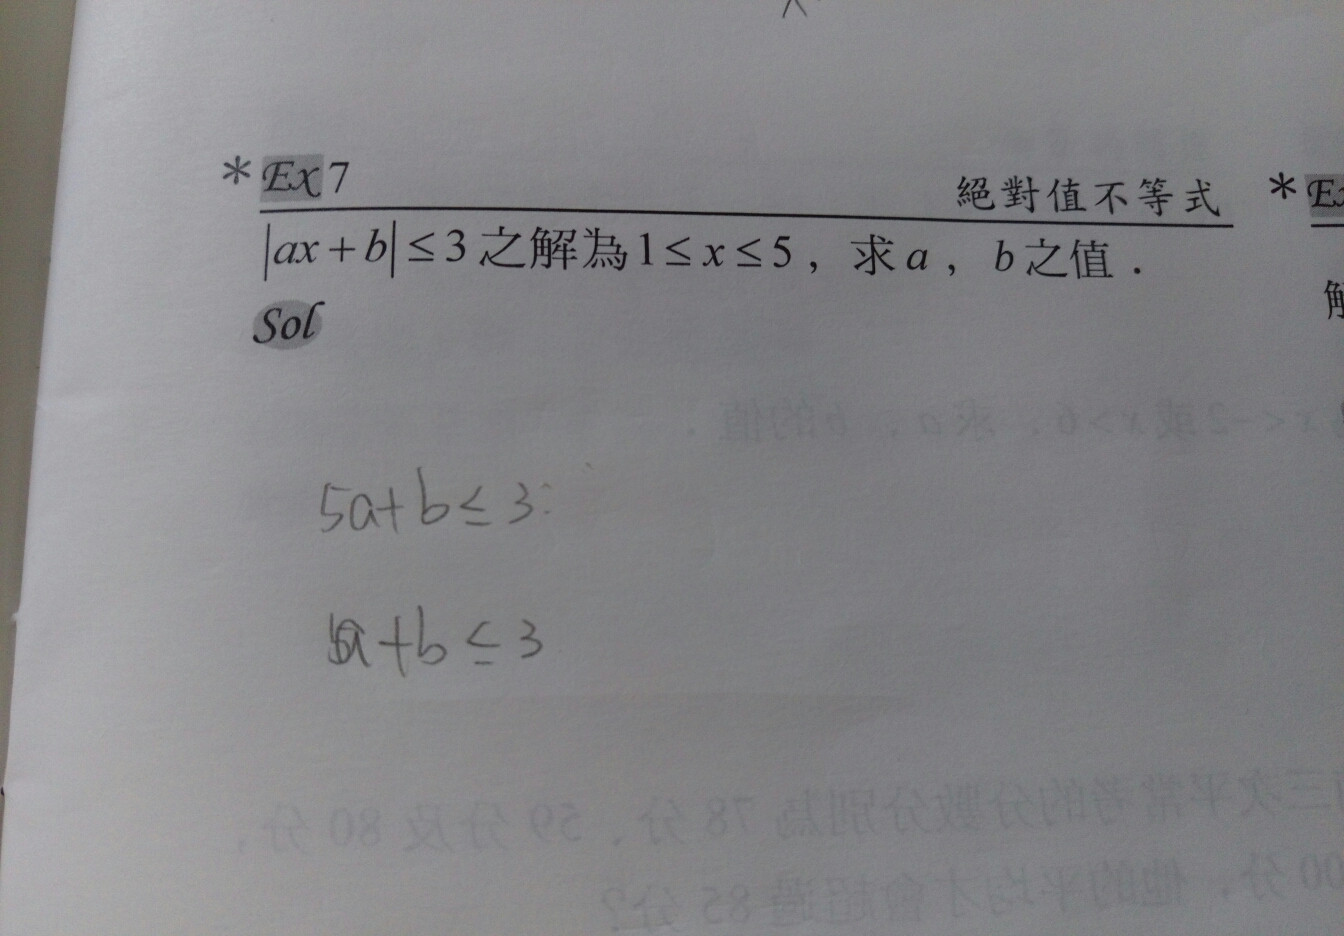 *Ex 7
絕對值不等式
|ax+b|≤3之解為1≤x≤5，求a，b之值．
Sol
5a+b≤3
a+b≤3
*Ex